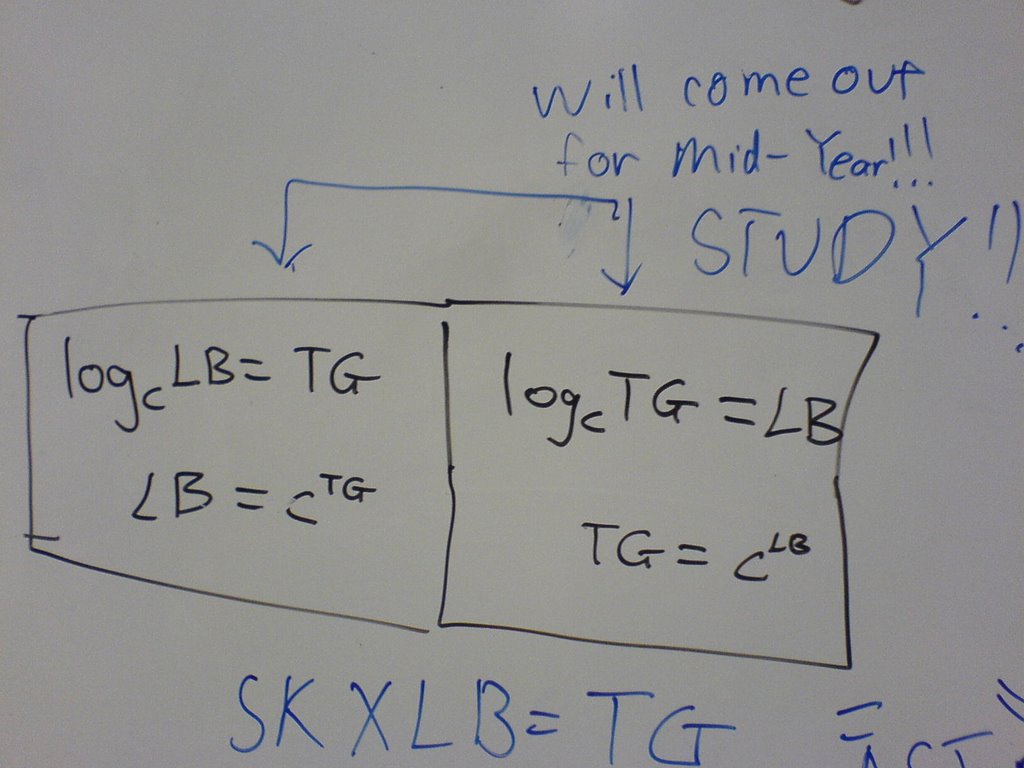 Will come out
for Mid-Year!!!
STUDY!!
log_c LB = TG
LB = c^TG
log_c TG = LB
TG = c^LB
SK X LB = TG =